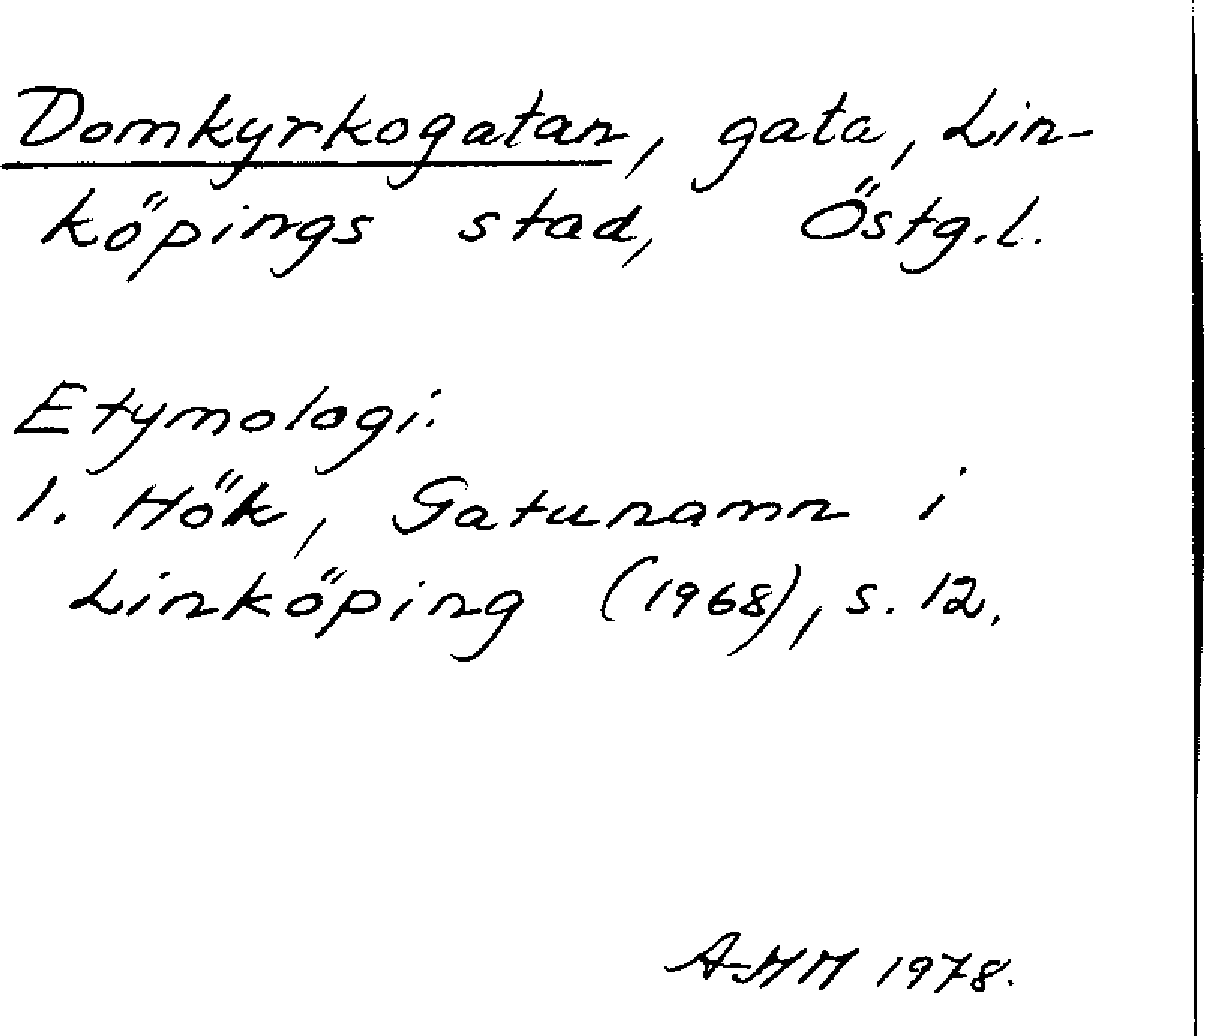 Domkyrkogatan, gata, Lin-
köpings stad, Östg.l.
Etymologi:
1. Hök, Gatunamn i
Linköping (1968), s. 12.
A-MM 1978.